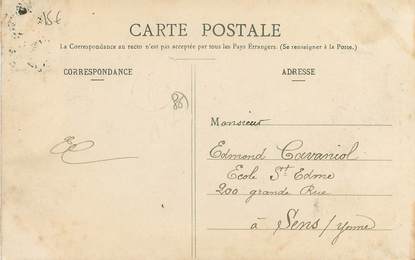 15€
CARTE POSTALE
La Correspondance au recto n'est pas acceptée par tous les Pays Etrangers. (Se renseigner à la Poste.)
CORRESPONDANCE
ADRESSE
Monsieur
Edmond Cavaniol
Ecole St Edme
200 grande Rue
à Sens / Yonne